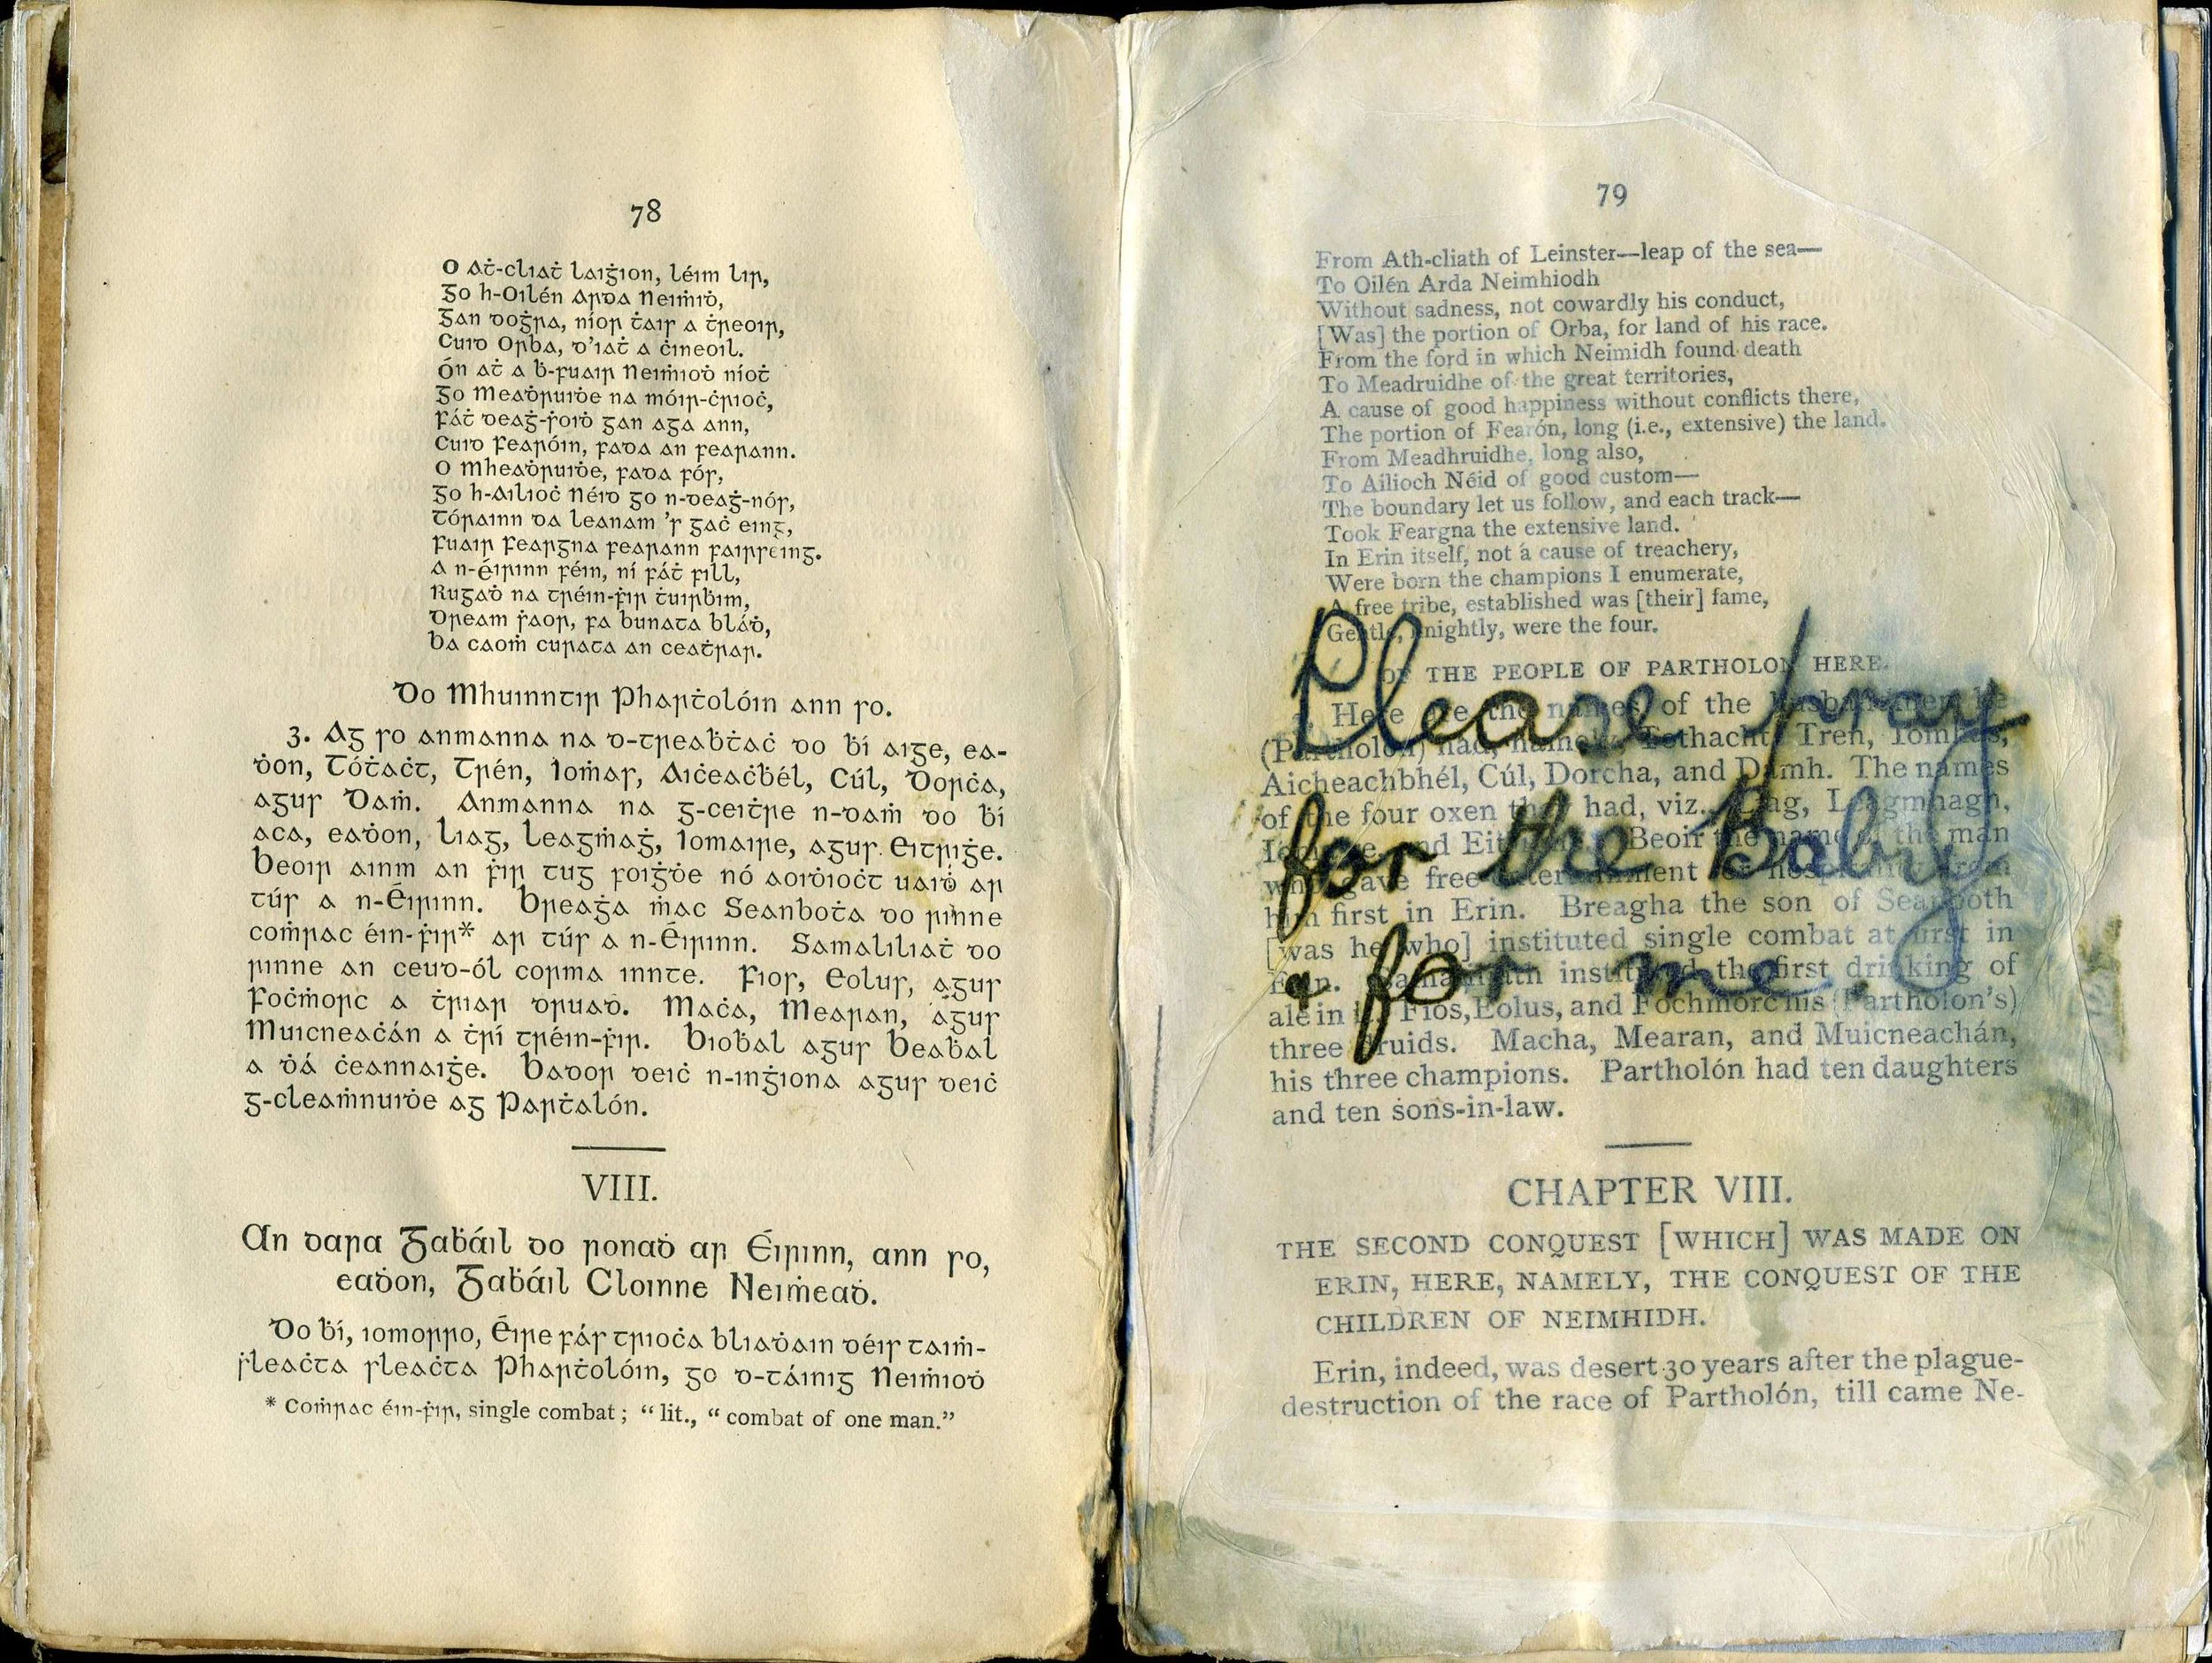 78
O Áṫ-cliaṫ Laiġion, léim lir,
Go h-Oilén Arda Neiṁiḋ,
Gan doġra, níor ṫair a ṫreoir,
Cuid Orba, d'iaṫ a ċineoil.
Ón áṫ a ḃ-fuair Neiṁioḋ níoṫ
Go Meaḋruiḋe na móir-ċríoċ,
Fáṫ deaġ-ṡoiḋ gan aga ann,
Cuid Fearóin, fada an fearann.
O Mheaḋruiḋe, fada fós,
Go h-Ailioċ Néid go n-deaġ-nós,
Tórainn da leanam 's gaċ eing,
Fuair Feargna fearann fairsing.
A n-Éirinn féin, ní fáṫ fill,
Rugaḋ na tréin-ḟir ṫuirḃim,
Dream ṡaor, fa bunata bláḋ,
Ba caoṁ curata an ceaṫrar.
Do Mhuinntir Pharṫolóin ann so.
3. Ag so anmanna na d-treaḃṫaċ do ḃí aige, ea-
ḋon, Tóṫaċt, Trén, Ioṁas, Aiċeaċḃél, Cúl, Dorċa,
agus Daṁ. Anmanna na g-ceiṫre n-daṁ do ḃí
aca, eaḋon, Liag, Leagṁaġ, Iomaire, agus Eitriġe.
Beoir ainm an ḟir tug foiġḋe nó aoiḋioċt uaiḋ ar
túr a n-Éirinn. Breaġa ṁac Seanboṫa do rinne
coṁrac éin-ḟir* ar túr a n-Éirinn. Samaliliaṫ do
rinne an ceud-ól corma innte. Fior, Eolur, agus
Foċṁorc a ṫriar druaḋ. Maċa, Mearan, agus
Muicneaċán a ṫrí tréin-ḟir. Bioḃal agus Beaḃal
a ḋá ċeannaiġe. Bador deiċ n-inġiona agus deiċ
g-cleaṁnuiḋe ag Parṫalón.
VIII.
An dara Gaḃáil do ronaḋ ar Éirinn, ann so,
eaḋon, Gaḃáil Cloinne Neiṁeaḋ.
Do ḃí, iomorro, Éire fás trioċa bliaḋain déis taiṁ-
ṡleaċta sleaċta Pharṫolóin, go d-táinig Neiṁioḋ
* Coṁrac éin-ḟir, single combat; "lit., "combat of one man."
79
From Ath-cliath of Leinster—leap of the sea—
To Oilén Arda Neimhiodh
Without sadness, not cowardly his conduct,
[Was] the portion of Orba, for land of his race.
From the ford in which Neimidh found death
To Meadruidhe of the great territories,
A cause of good happiness without conflicts there,
The portion of Fearón, long (i.e., extensive) the land.
From Meadhruidhe, long also,
To Ailioch Néid of good custom—
The boundary let us follow, and each track—
Took Feargna the extensive land.
In Erin itself, not a cause of treachery,
Were born the champions I enumerate,
A free tribe, established was [their] fame,
Gentle, knightly, were the four.
OF THE PEOPLE OF PARTHOLON HERE.
Here are the names of the
(Partholon) had, namely, Tothacht, Tren, Iomhas,
Aicheachbhél, Cúl, Dorcha, and Damh. The names
of the four oxen they had, viz., Liag, Leagmhagh,
and Beoir the name of the man
who gave free entertainment from
him first in Erin. Breagha the son of Seanboth
[was he who] instituted single combat at first in
Erin. instituted the first drinking of
ale in it. Fios, Eolus, and Fochmorc his (Partholon's)
three druids. Macha, Mearan, and Muicneachán,
his three champions. Partholón had ten daughters
and ten sons-in-law.
Please pray
for the Baby
& for me.
CHAPTER VIII.
THE SECOND CONQUEST [WHICH] WAS MADE ON
ERIN, HERE, NAMELY, THE CONQUEST OF THE
CHILDREN OF NEIMHIDH.
Erin, indeed, was desert 30 years after the plague-
destruction of the race of Partholón, till came Ne-